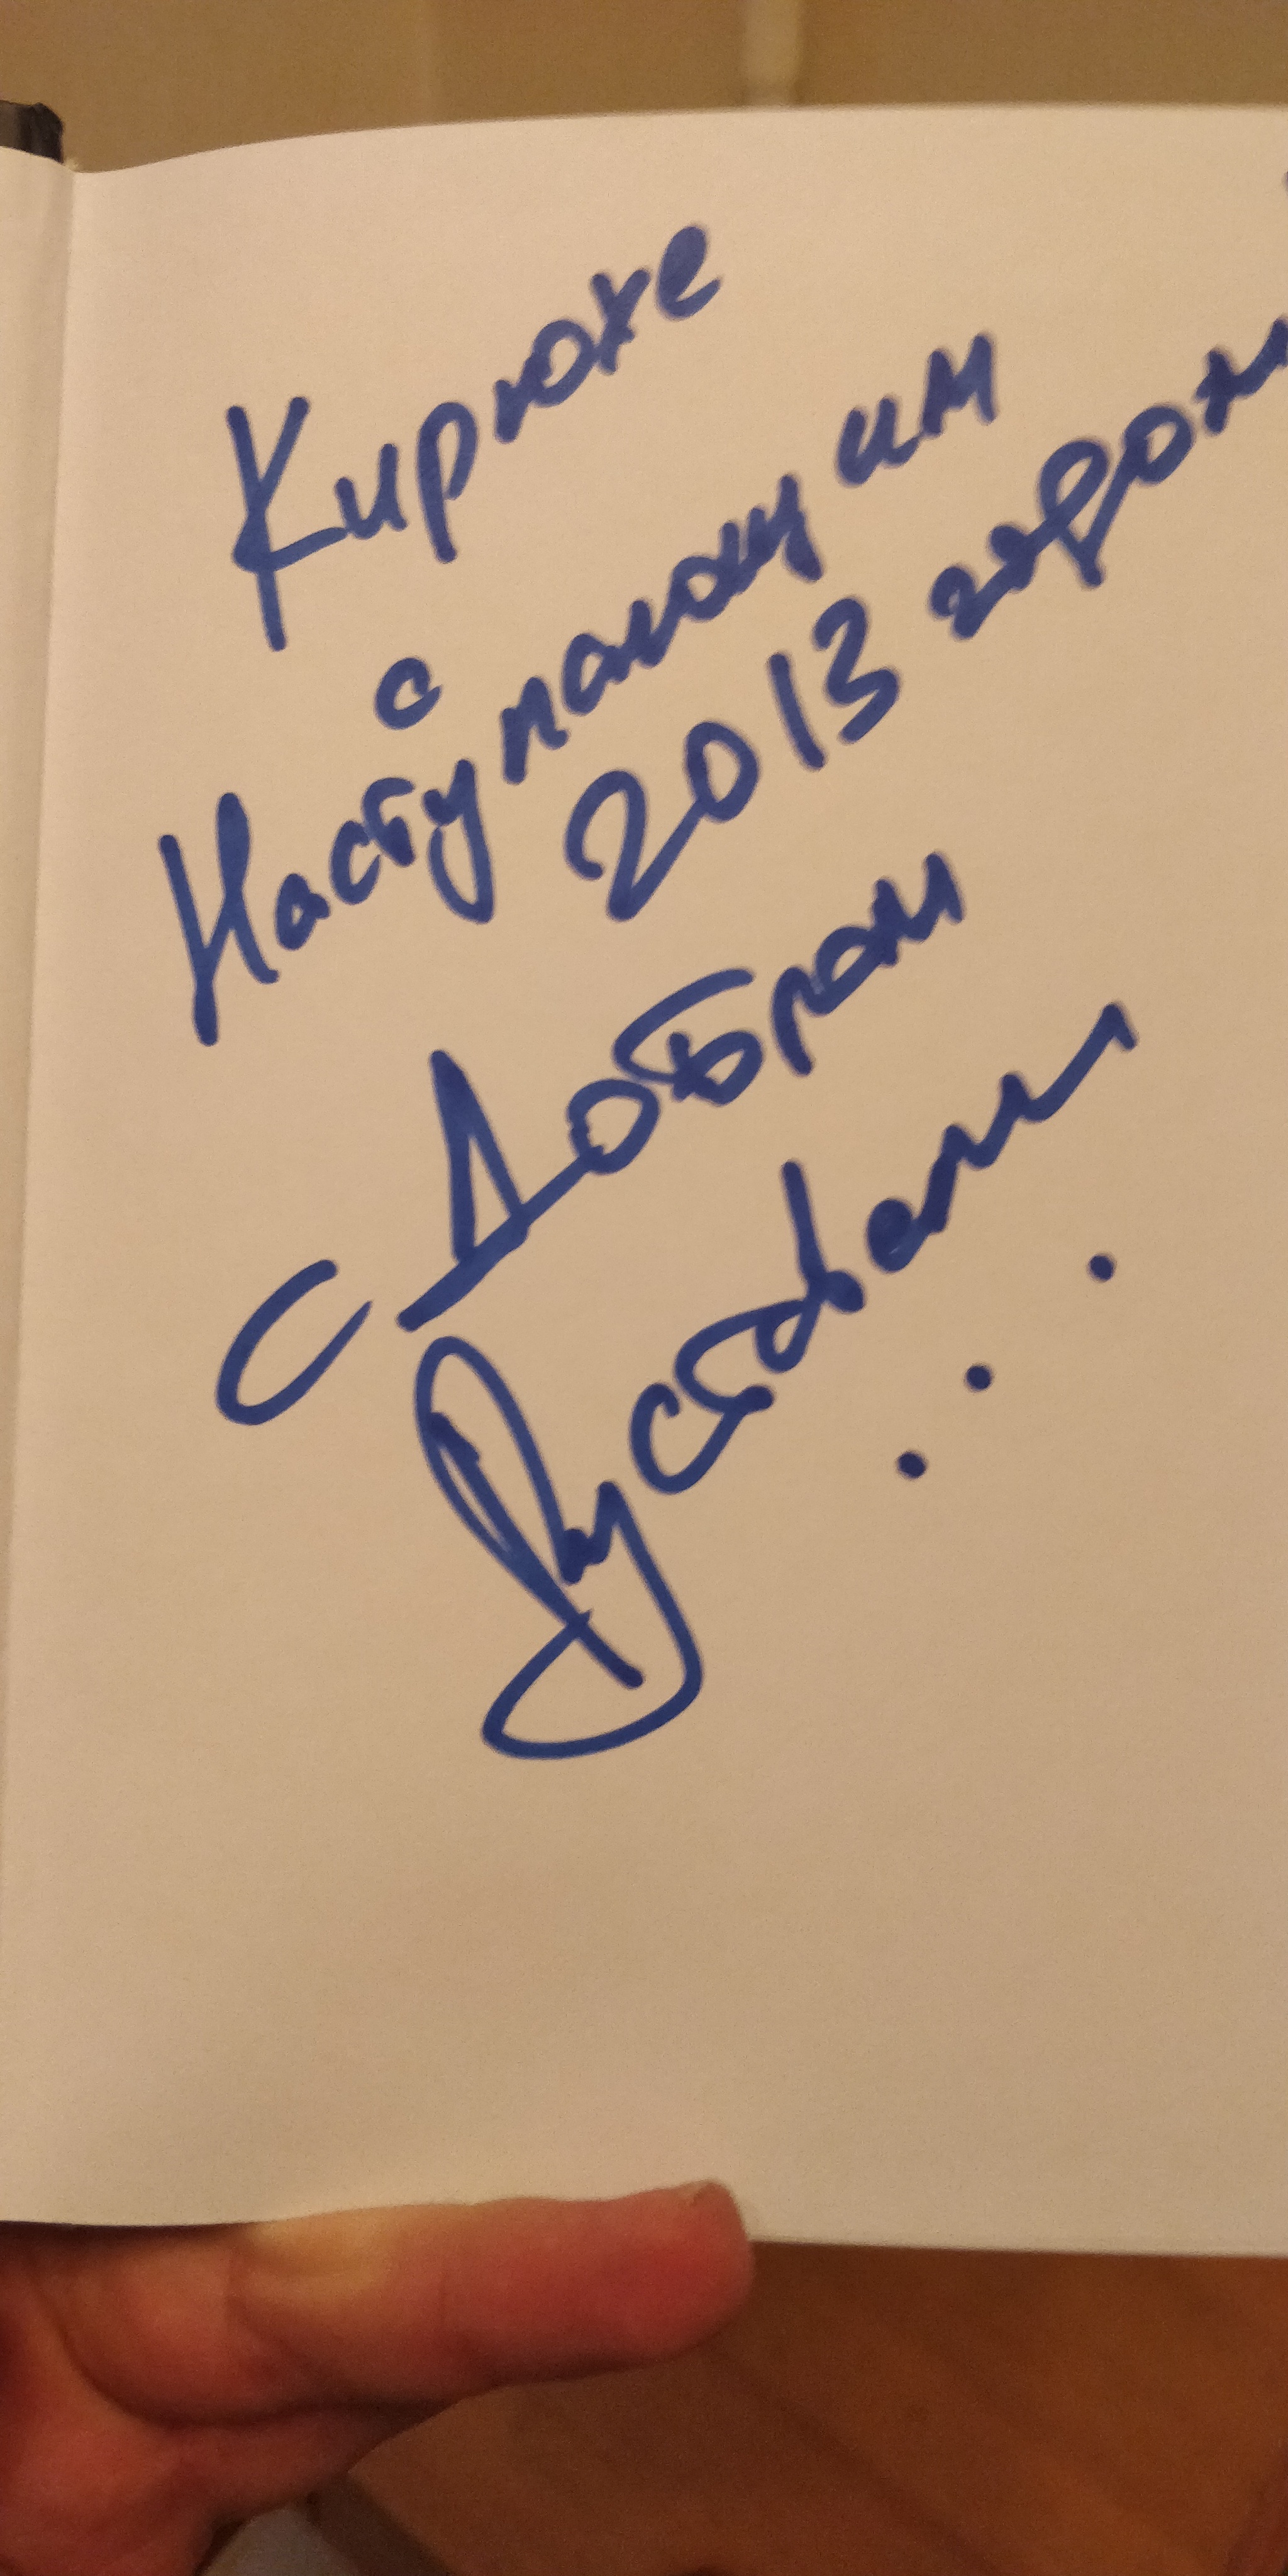 Кирюхе
с
Наступающим
2013 годом
С Добром
Руставели
...